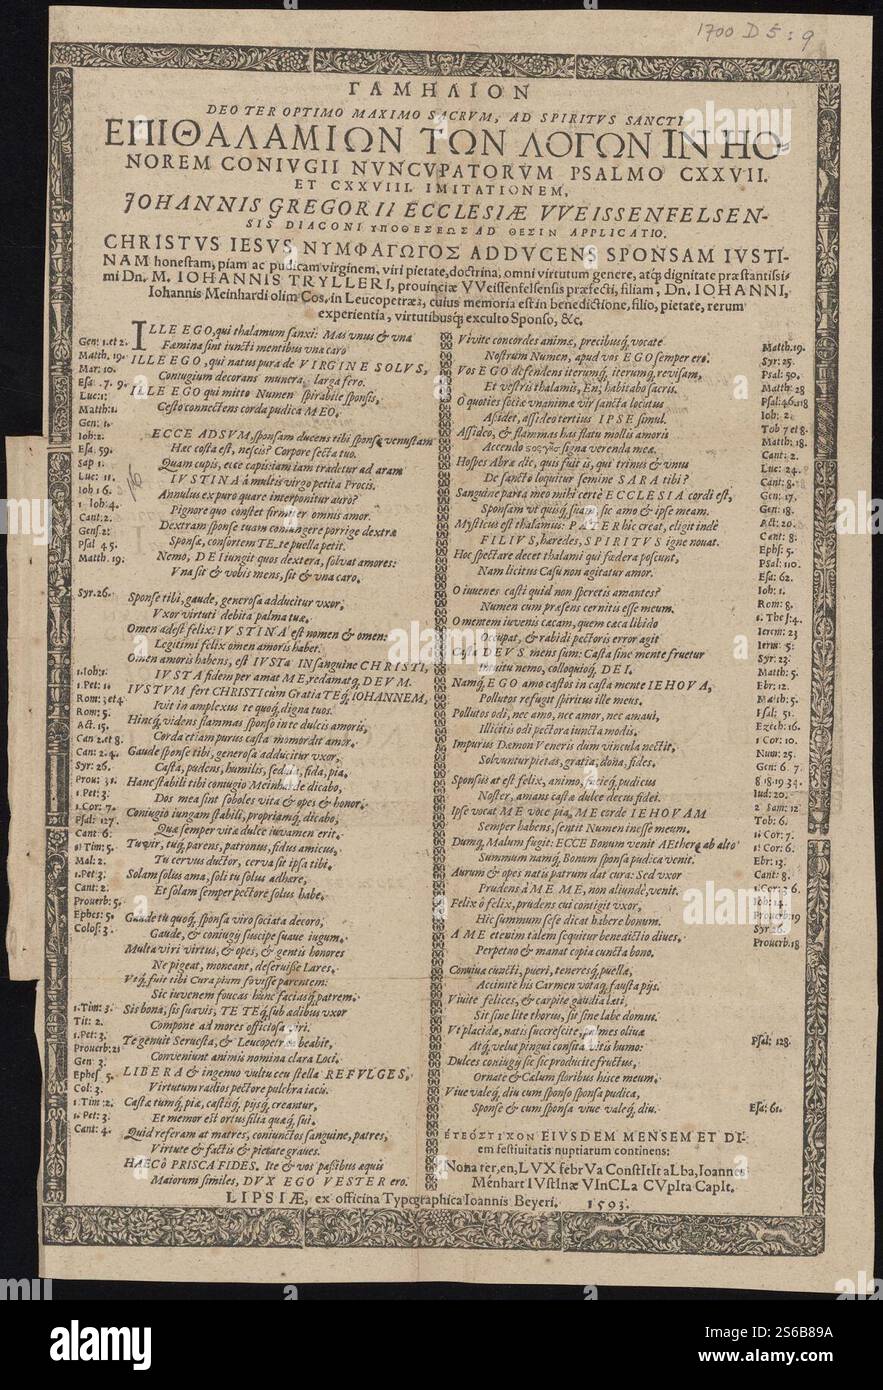 1700 D 5 : 9
ΓΑΜΗΛΙΟΝ
DEO TER OPTIMO MAXIMO SACRVM, AD SPIRITVS SANCTI
ΕΠΙΘΑΛΑΜΙΩΝ ΤΩΝ ΛΟΓΩΝ IN HO-
NOREM CONIVGII NVNCVPATORVM PSALMO CXXVII.
ET CXXVIII. IMITATIONEM,
JOHANNIS GREGORII ECCLESIÆ VVEISSENFELSEN-
SIS DIACONI ΥΠΟΘΕΣΕΩΣ AD ΘΕΣΙΝ APPLICATIO.
CHRISTVS IESVS ΝΥΜΦΑΓΩΓΟΣ ADDVCENS SPONSAM IVSTI-
NAM honestam, piam ac pudicam virginem, viri pietate, doctrina, omni virtutum genere, atq; dignitate præstantissi-
mi Dn. M. IOHANNIS TRYLLERI, prouinciæ VVeissenfelsensis præfecti, filiam, Dn. IOHANNI,
Iohannis Meinhardi olim Cos. in Leucopetræa, cuius memoria est in benedictione, filio, pietate, rerum
experientia, virtutibusq; exculto Sponso, &c.
Gen: 1. et 2. ILLE EGO, qui thalamum sanxi: Mas vnus & vna
Matth. 19. Fæmina sint iuncti mentibus vna caro
Mar: 10. ILLE EGO, qui natus pura de VIRGINE SOLVS,
Esa. 7. 9. Coniugium decorans munera larga fero.
Luc: 1: ILLE EGO qui mitto Numen spirabile sponsis,
Matth: 1. Cesto connectens corda pudica MEO,
Gen: 1.
Ioh: 2: ECCE ADSVM, sponsam ducens tibi sponse venustam
Esa. 59. Hæc costa est, nescis? Corpore secta tuo.
Sap 1. Quam cupis, ecce capis: iam iam tradetur ad aram
Luc: 11. IVSTINA à multis virgo petita Procis.
Ioh 16. Annulus ex puro quare interponitur auro?
1 Ioh: 4. Pignore quo constet firmiter omnis amor.
Cant: 2. Dextram sponse tuam coniungere porrige dextræ
Gens: 2: Sponsæ, consortem TE, te puella petit.
Psal 45. Nemo, DEI iungit quos dextera, solvat amores:
Matth. 19: Vna sit & vobis mens, sit & vna caro.
Syr. 26. Sponse tibi, gaude, generosa adducitur vxor,
Vxor virtuti debita palma tuæ.
Omen adest felix: IVSTINA est nomen & omen:
Legitimi felix omen amoris habet.
Omen amoris habens, est IVSTA IN sanguine CHRISTI,
1. Ioh: 1. IVSTA fidem per amat ME, redamatq; DEVM.
1. Pet: 1. IVSTVM fert CHRISTI cùm Gratia TEq; IOHANNEM,
Rom: 3 et 4. Ivit in amplexus te quoq; digna tuos.
Rom: 5. Hincq; videns flammas sponso in te dulcis amoris,
Act. 15. Corda etiam purus casta momordit amor.
Can 2. et 8. Gaude sponse tibi, generosa adducitur vxor,
Can: 2. 4. Casta, pudens, humilis, sedula, fida, pia,
Syr: 26. Hanc stabili tibi coniugio Meinharde dicabo,
Prou: 31. Dos mea sint soboles vita & opes & honor.
1. Pet: 3. Coniugio iungam stabili, propriamq; dicabo,
1. Cor: 7. Quæ semper vitæ dulce iuvamen erit.
Psal: 127. Tu vir, tuq; parens, patronus, fidus amicus,
Cant: 6. Tu cervus ductor, cerva sit ipsa tibi,
1: Tim: 5. Solam solus ama, soli tu solus adhære,
Mal: 2. Et solam semper pectore solus habe.
1. Pet 3. Gaude tu quoq; sponsa viro sociata decoro,
Cant: 2. Gaude, & coniugij suscipe suave iugum.
Prouerb: 5. Multa viri virtus, & opes, & gentis honores
Ephes: 5. Ne pigeat, moneant, deseruisse Lares.
Colos: 3. Vtq; fuit tibi Cura pium fovisse parentem:
Sic iuvenem foveas hunc faciasq; patrem.
1. Tim: 3. Sis bona, sis suavis, TE TEq; sub ædibus vxor
Tit: 2. Compone ad mores officiosa viri.
1. Pet: 3. Te genuit Servesta, & Leucopetra beabit,
Prouerb: 21 Conveniunt animis nomina clara Loci.
Gen: 3. LIBERA & ingenuo vultu ceu stella REFVLGES,
Ephes 5. Virtutum radios pectore pulchra iacis.
Col: 3. Castæ tumq; piæ, castisq; pijsq; creantur,
1: Tim: 2. Et memor est ortus filia quæq; sui.
1: Pet: 3. Quid referam at matres, coniunctos sanguine, patres,
Cant: 4. Virtute & factis & pietate graves.
HAEC ô PRISCA FIDES. Ite & vos passibus æquis
Maiorum similes, DVX EGO VESTER ero.
Vivite concordes animæ, precibusq; vocate Matth. 19.
Nostrum Numen, apud vos EGO semper ero. Syr: 25.
Vos EGO defendens iterumq; iterumq; revisam, Psal: 50.
Et vestris thalamis, En, habitabo sacris. Matth: 28
O quoties sociæ vnanimæ vir sancta locutus Psal: 46. 118
Assidet, assideo tertius IPSE simul. Ioh: 2.
Assideo, & flammas has flatu mollis amoris Tob 7 et 8.
Accendo signa verenda meæ. Matth: 18.
Hospes Abræ dic, quis fuit is, qui trinus & vnus Cant: 2.
De sancto loquitur semine SARA tibi? Luc: 24.
Sanguine parta meo mihi certè ECCLESIA cordi est, Cant: 8.
Sponsam vt quisq; suam, sic amo & ipse meam. Gen: 17.
Mysticus est thalamus: PATER hic creat, eligit indè Gen: 18.
FILIVS, hæredes, SPIRITVS igne nouat. Act: 20.
Hoc spectare decet thalami qui fœdera poscunt, Cant: 8:
Nam licitus Casu non agitatur amor. Ephs: 5.
O iuuenes casti quid non speretis amantes? Psal: 110.
Numen cum præsens cernitis esse meum. Esa: 62.
O mentem iuvenis cæcam, quem cæca libido Ioh: 1.
Occupat, & rabidi pectoris error agit Rom: 8.
Casta DEVS mens sum: Casta sine mente fruetur 1. Thes: 4.
Intuitu nemo, colloquioq; DEI. Ierm: 23
Namq; EGO amo castos in casta mente IEHOVA, Ierm: 5:
Pollutos refugit spiritus ille meus. Syr: 23.
Pollutos odi, nec amo, nec amor, nec amaui, Matth: 5.
Illicitis odi pectora iuncta modis. Ebr: 12.
Impurus Dæmon Veneris dum vincula nectit, Matth: 5.
Solvuntur pietas, gratia, dona, fides. Psal: 51.
Sponsus at est felix, animo, facieq; pudicus Ezech: 16.
Noster, amans castæ dulce decus fidei. 1 Cor: 10.
Ipse vocat ME voce pia, ME corde IEHOVAM Num: 25.
Semper habens, sentit Numen inesse meum. Gen: 6. 7.
Dumq; Malum fugit: ECCE Bonum venit AEthere ab alto 8 18. 19 34.
Summum namq; Bonum sponsa pudica venit. Iud: 20.
Aurum & opes natis patrum dat cura: Sed vxor 2 Sam: 12
Prudens à ME ME, non aliundè, venit. Tob: 6.
Felix ô felix, prudens cui contigit vxor, 1: Cor: 7:
Hic summum sese dicat habere bonum. 1: Cor: 6.
A ME etenim talem sequitur benedictio dives, Ebr: 13.
Perpetuo & manat copia cuncta bono. Cant: 8.
Conviuæ cuncti, pueri, teneresq; puellæ, 1: Cor: 3 6.
Accinite his Carmen votaq; fausta pijs. Ioh: 14.
Viuite felices, & carpite gaudia læti, Prouerb: 19
Sit sine lite thorus, sit sine labe domus. Syr 26.
Vt placidæ, natis succrescite, palmes olivæ Prouerb. 18
Atq; velut pingui consita vitis humo: Psal: 128.
Dulces coniugij sic sic producite fructus,
Ornate & Cælum floribus hisce meum.
Viue valeq; diu cum sponso sponsa pudica,
Sponse & cum sponsa viue valeq; diu. Esa: 61.
ἐτεόστιχον EIVSDEM MENSEM ET DI-
em festiuitatis nuptiarum continens:
Nona ter, en, LVX febrVa ConstItIt aLba, Ioannes
Menhart IVstInæ VInCLa CVpIta CapIt.
LIPSIÆ, ex officina Typographica Ioannis Beyeri. 1593.
alamy
Image ID: 2S6B89A
www.alamy.com